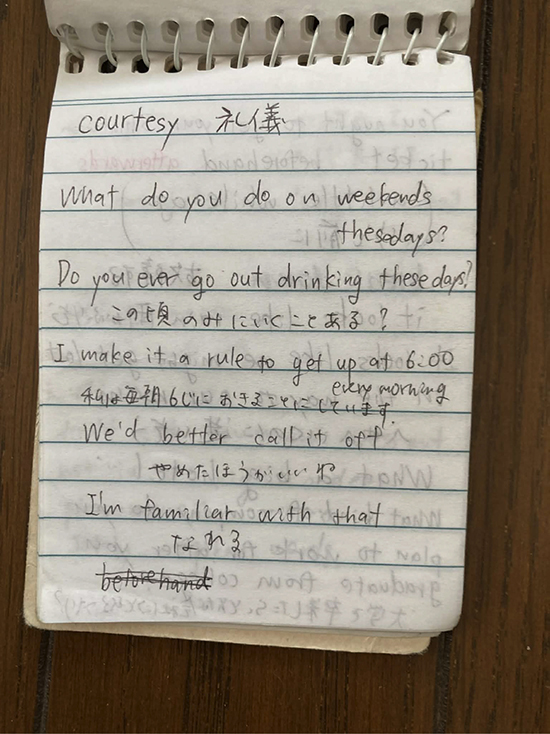 courtesy 礼儀
What do you do on weekends
thesedays?
Do you ever go out drinking these days?
この頃 のみにいくことある?
I make it a rule to get up at 6:00
every morning
私は毎朝6じにおきることにしています.
We'd better call it off
やめたほうがいいね
I'm familiar with that
なれる
beforehand